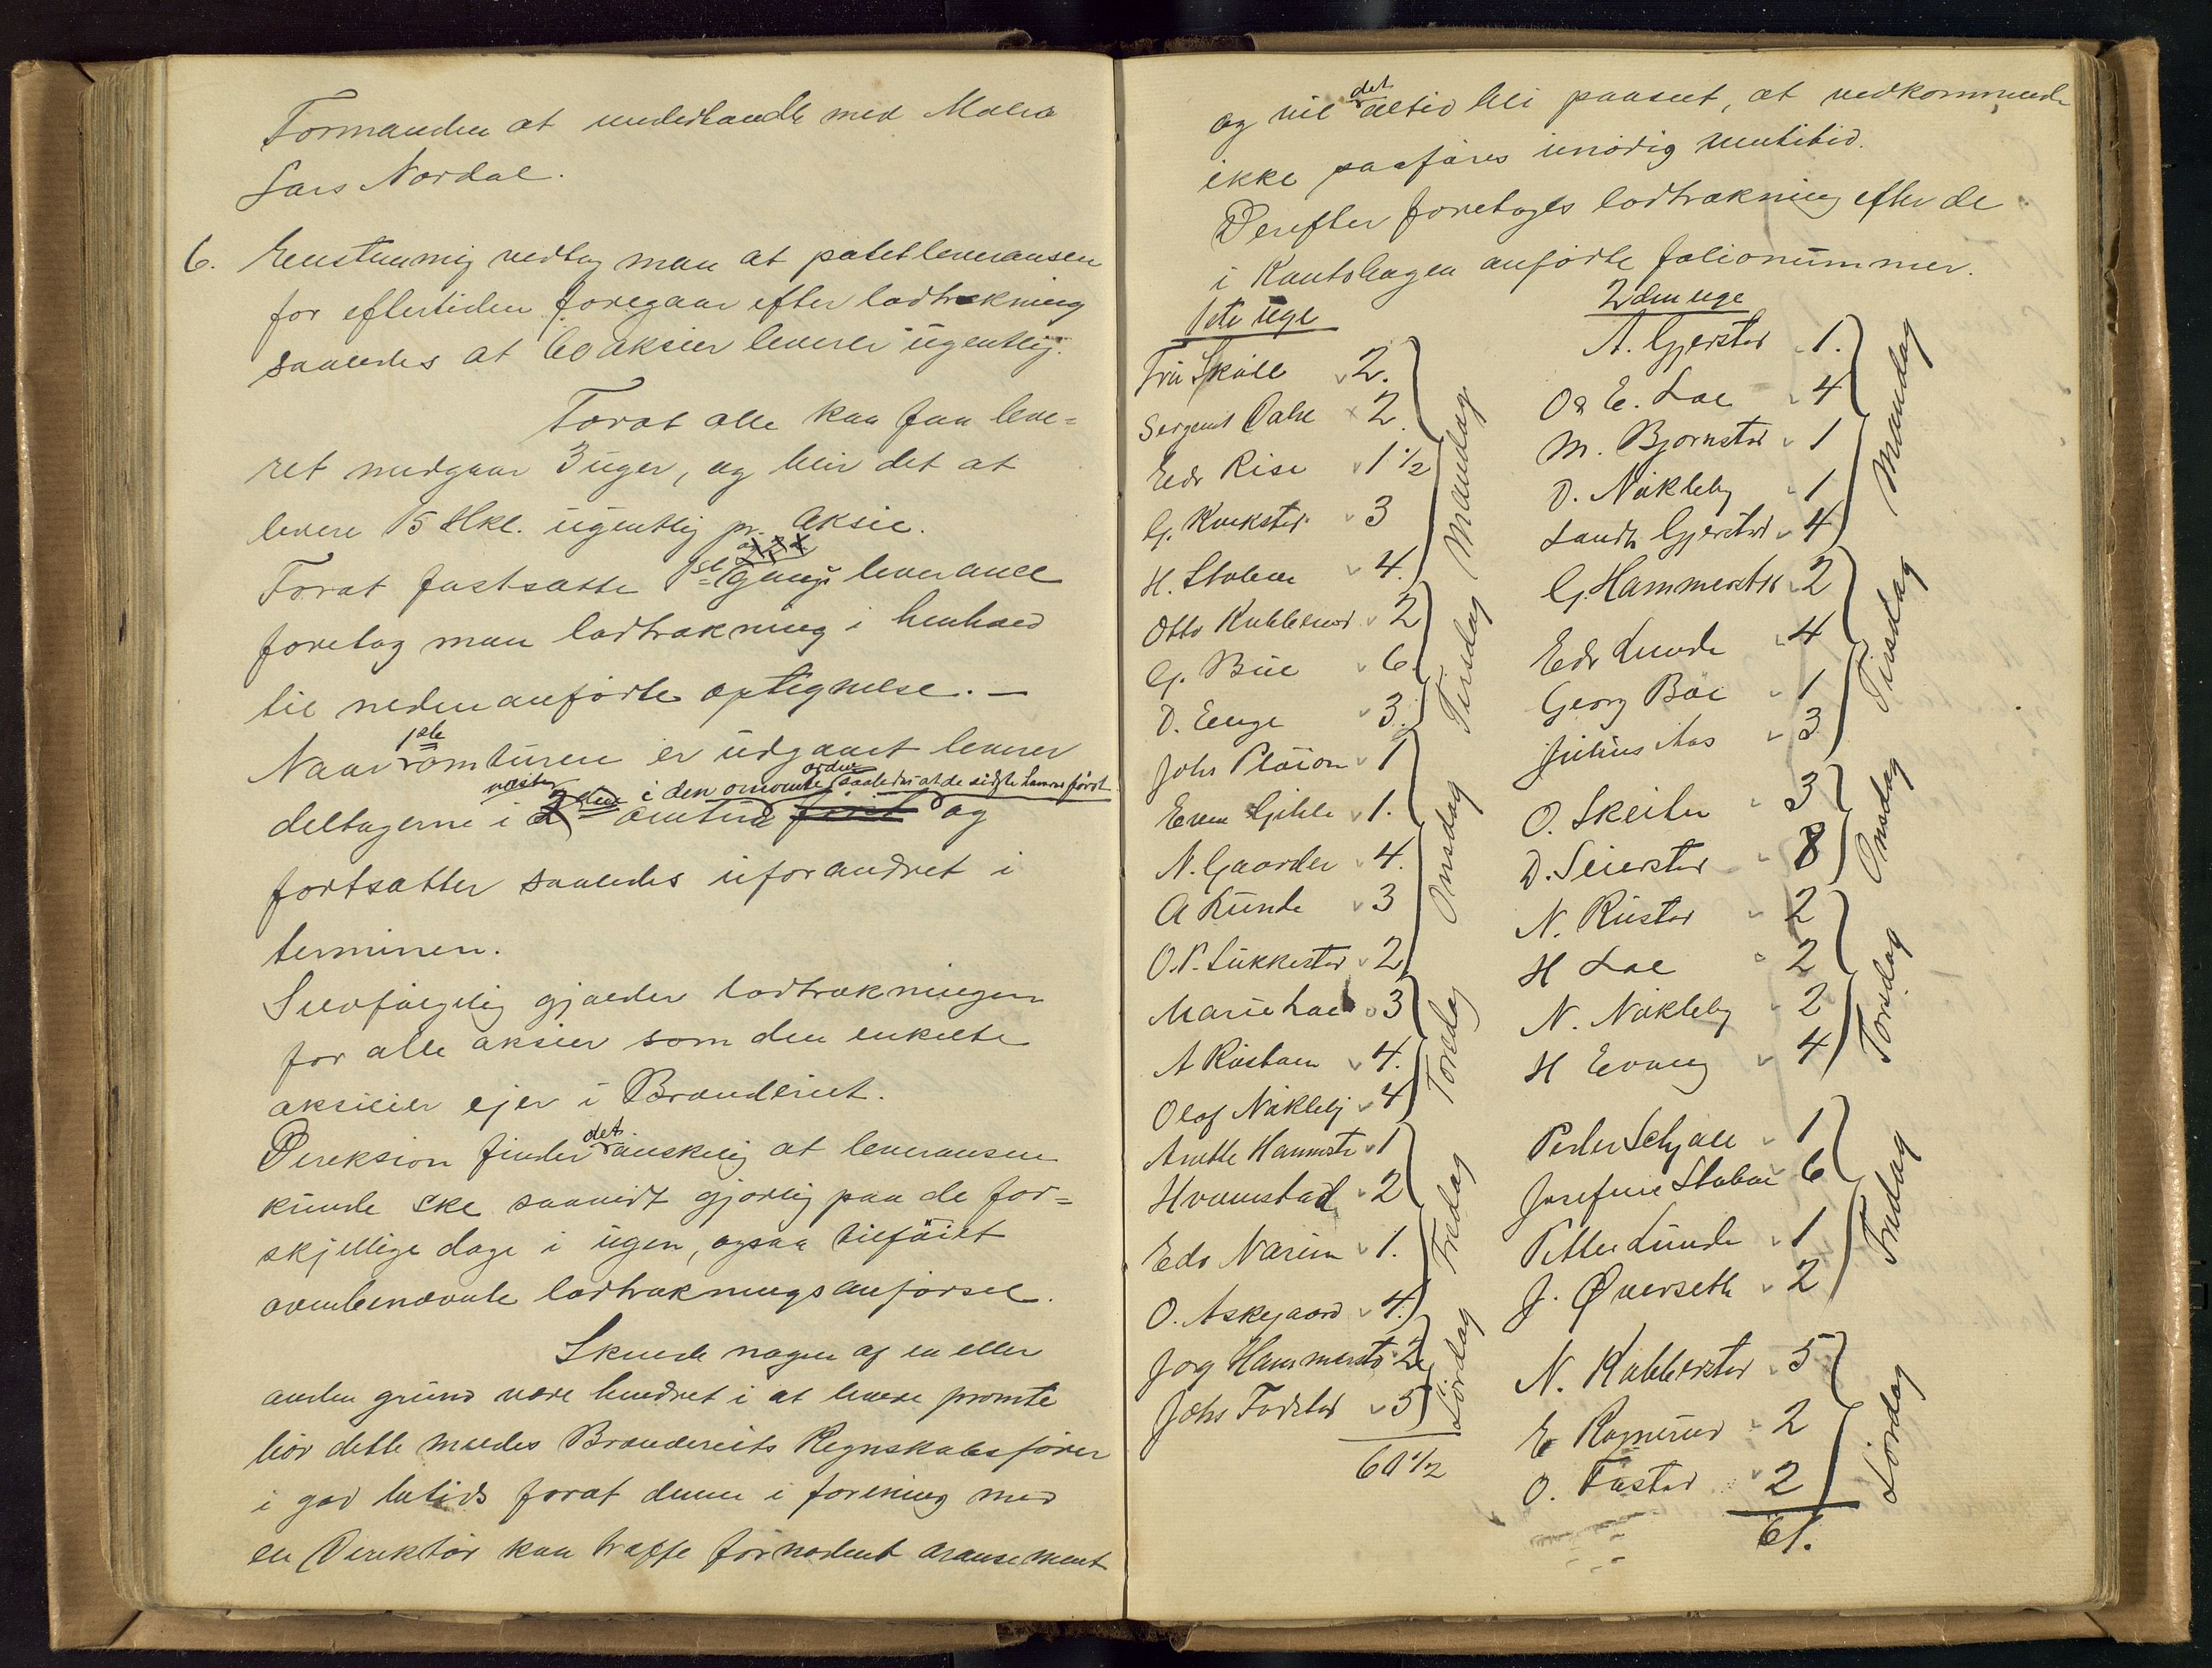 Formanden at underhandle med Maler
Lars Nordal.
6. Enstemmig vedtog man at potetleveransen
for eftertiden foregaar efter lodtrækning
saaledes at 60 aksier leverer ugentlig.
Forat alle kan faa leve=
ret medgaar 3 uger, og blir det at
levere 15 Hkl. ugentlig pr. Aksie.
Forat fastsætte 1ste gangs leverance
foretog man lodtrækning i henhold
til nedenanførte optegnelse. —
Naar 1ste omturen er udgaaet leverer
næste i den omvendte orden saaledes at de sidste kommer først
deltagerne i omtur og
fortsætter saaledes uforandret i
terminen.
Selvfølgelig gjælder lodtrækningen
for alle aksier som den enkelte
aksieier ejer i Brænderiet.
Direksion finder det ønskelig at leveransen
kunde ske saavidt gjørlig paa de for=
skjellige dage i ugen, ogsaa tilføiet
ovenbenævnte lodtrækningsanførsel.
Skulde nogen af en eller
anden grund være hindret i at levere promte
bør dette meldes Brænderiets Regnskabsfører
i god betids forat denne i forening med
en Direktør kan træffe fornødent aransement
og vil det altid bli paaseet, at vedkommende
ikke paaføres unødig ventetid.
Derefter foretoges lodtrækning efter de
i Kontobogen anførte folionummer.
1ste uge
Fru Skøll 2.
Sergent Dahl 2.
Edv Rise 1 1/2
G. Kvekstad 3
H. Stabæk 4.
Mandag
Otto Kubberud 2
G. Bue 6.
D. Enge 3.
Tirsdag
Johs Pløion 1
Even Gihle 1.
N. Gaarder 4.
A Lunde 3
O.P. Sukkestad 2
Onsdag
Marie Loe 3
A Røstøen 4.
Olaf Nøkleby 4
Torsdag
Anette Hammerst 1
Hvamstad 2
Edv Narum 1.
O. Askegaard 4.
Fredag
Jog Hammerstad 2
Johs Fodstad 5
Lørdag
60 1/2
2den uge
A. Gjerstad 1.
Ole E. Loe 4
M. Bjørnstad 1
D. Nøkleby 1
Landh Gjerstad 4
Mandag
G. Hammerstad 2
Edv Lunde 4
Georg Bøe 1
Julius Aas 3
Tirsdag
O. Skeiter 3
D. Seierstad 8
Onsdag
N. Rustad 2
H Loe 2
N. Nøkleby 2
H Evang 4
Torsdag
Peder Schjøll 1
Josefine Stabæk 6
Petter Lunde 1
J. Øverseth 2
Fredag
N. Kubberstad 5
E Rognerud 2
O. Fastad 2
Lørdag
61.